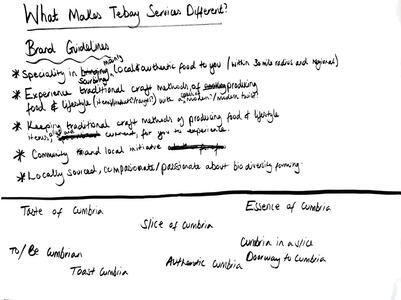 What Makes Tebay Services Different?
Brand Guidelines
mainly
* Speciality in bringing local & authentic food to you (within 30 mile radius and regional)
sourcing
* Experience traditional craft methods of producing
food & lifestyle (items/) with a modern/modern twist
* Keeping traditional craft methods of producing food & lifestyle
items, current, for you to experience.
* Community and local initiative
* Locally sourced, compassionate/passionate about biodiversity farming.
Taste of Cumbria
Essence of Cumbria
Slice of Cumbria
To/Be Cumbrian
Cumbria in a slice
Toast Cumbria
Authentic Cumbria
Doorway to Cumbria